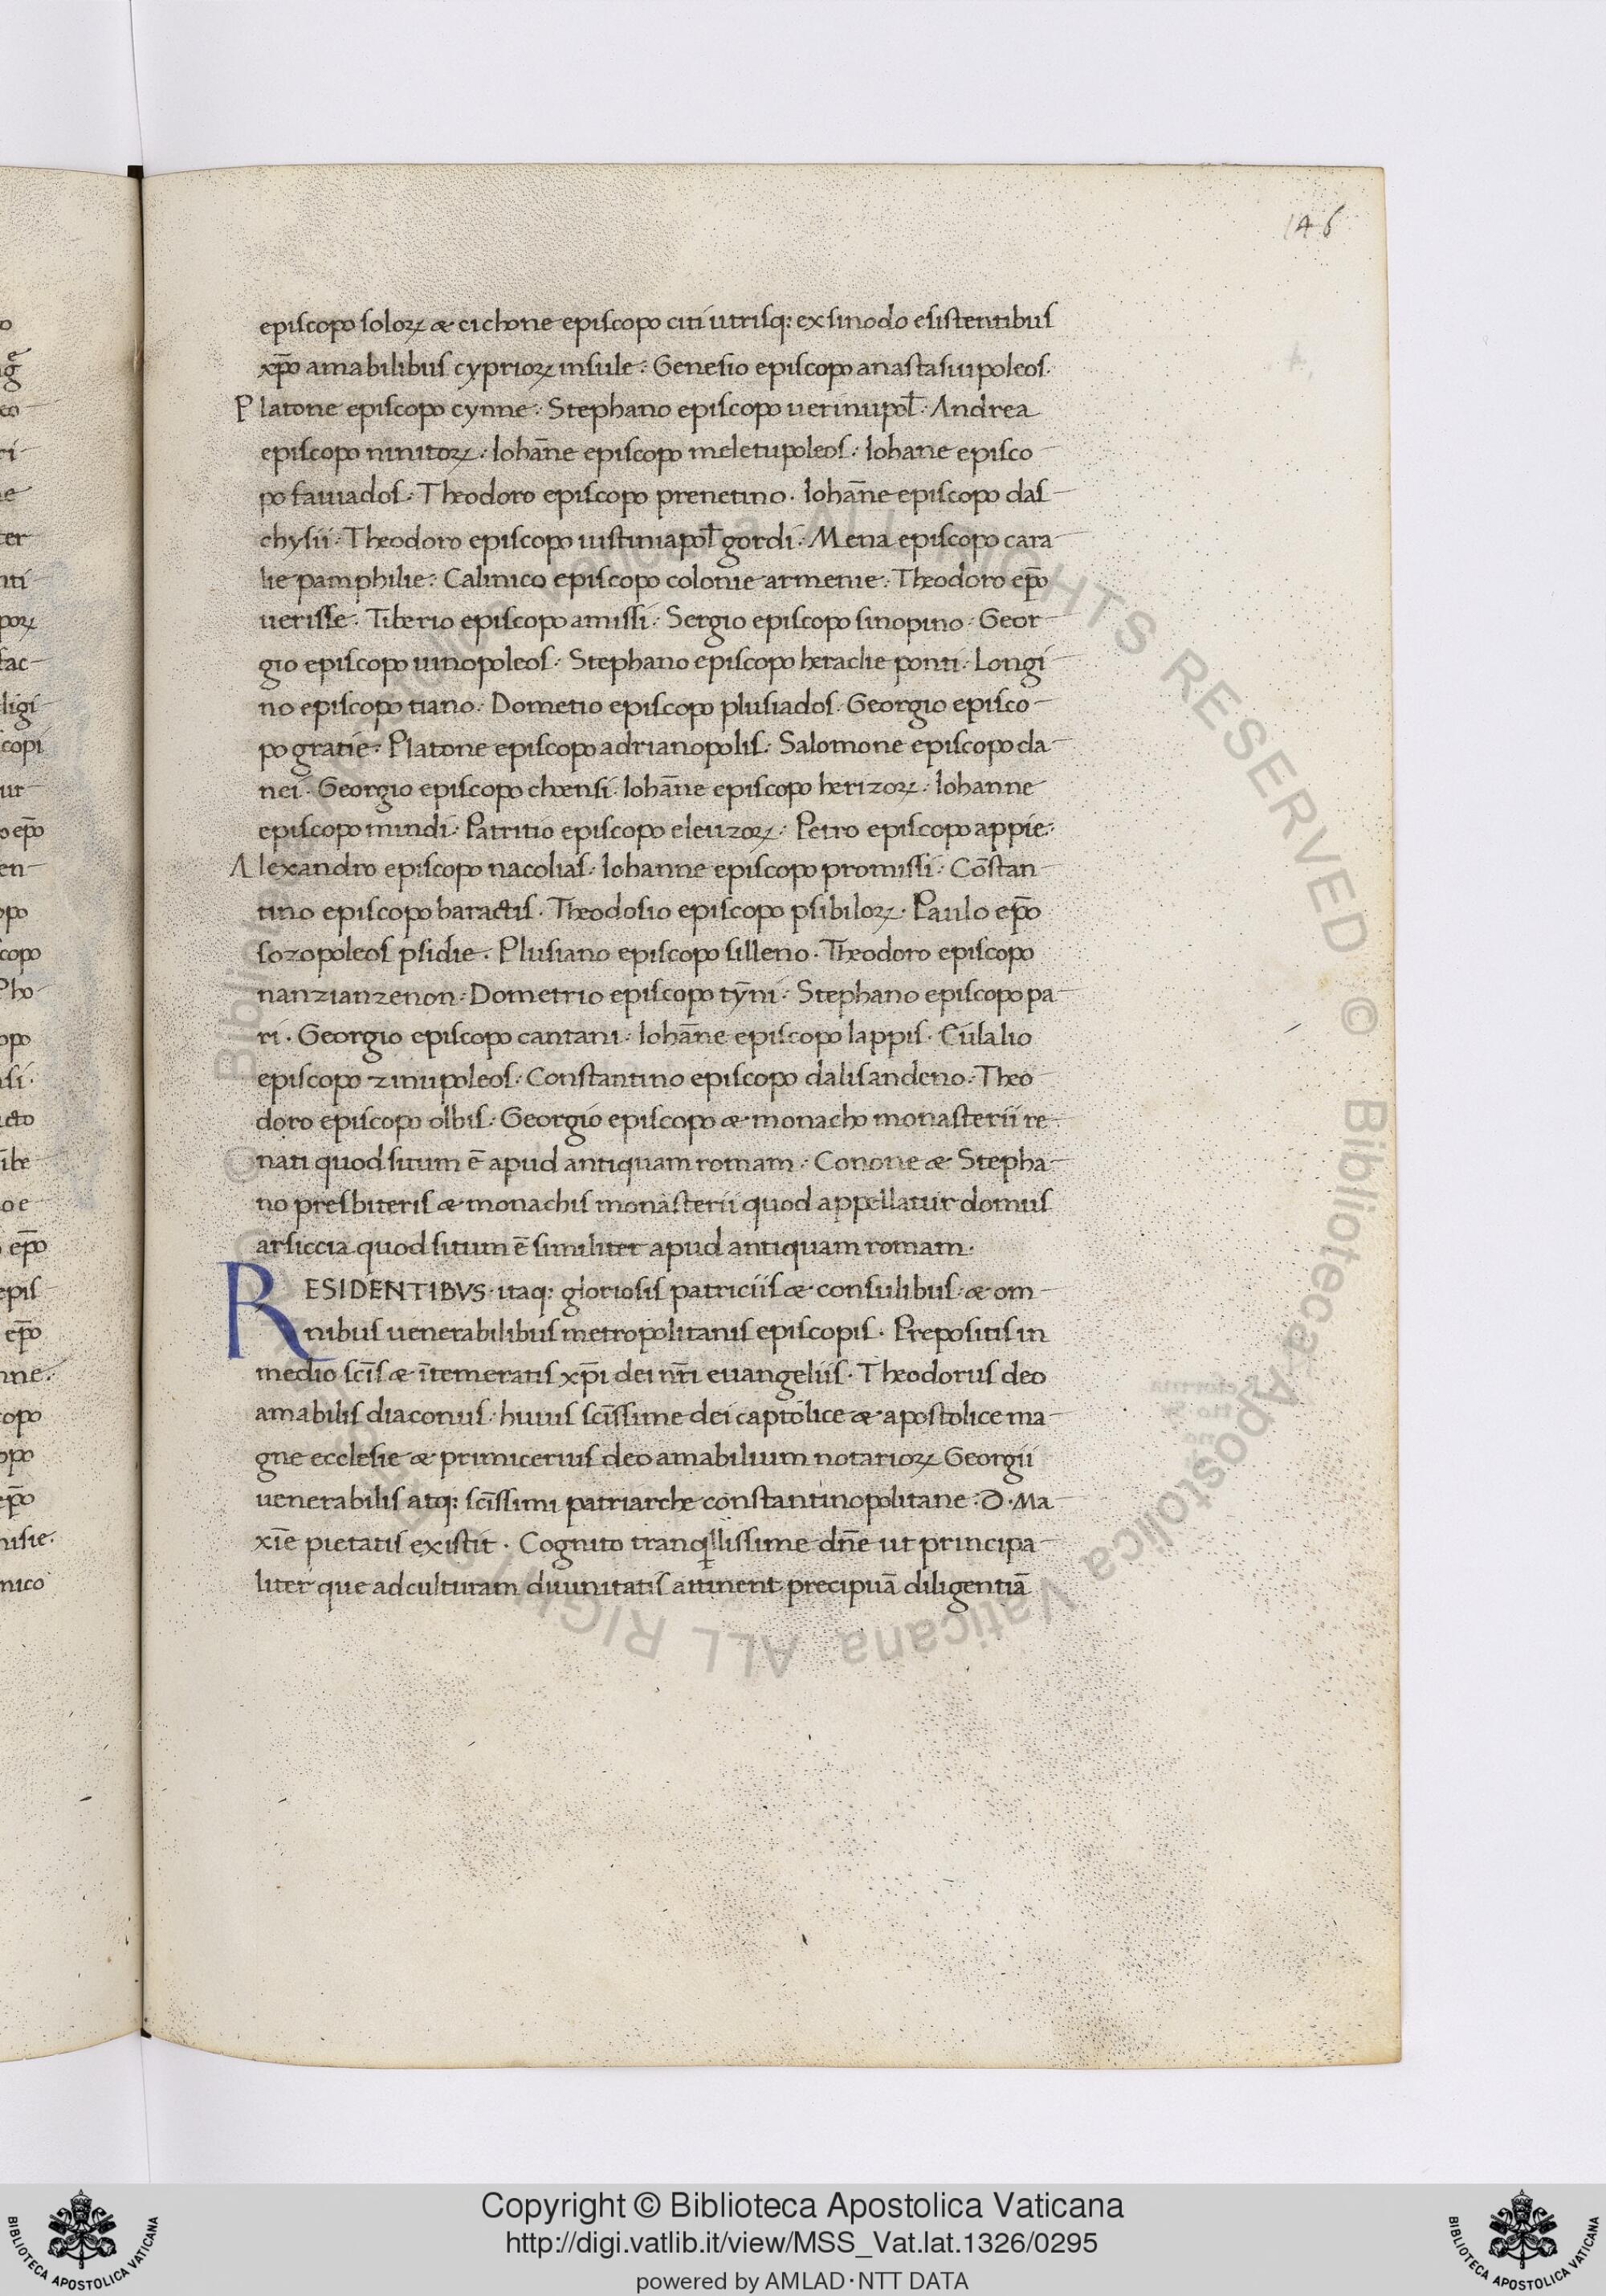 146
episcopo soloꝝ & cichone episcopo citi utrisq: ex sinodo esistentibus
xp̄o amabilibus cyprioꝝ insule. Genesio episcopo anastasiupoleos.
Platone episcopo cynne. Stephano episcopo uerinupoł. Andrea
episcopo ninitoꝝ. Iohāne episcopo meletupoleos. Iohane episco
po fauiados. Theodoro episcopo prenetino. Iohāne episcopo das
chysii. Theodoro episcopo iustiniapoł gordi. Mena episcopo cara
lie pamphilie. Calinico episcopo colonie armenie. Theodoro ep̄o
uerisse. Tiberio episcopo amissi. Sergio episcopo sinopino. Geor
gio episcopo iunopoleos. Stephano episcopo heraclie ponti. Longi
no episcopo tiano. Dometio episcopo plusiados. Georgio episco
po gratie. Platone episcopo adrianopolis. Salomone episcopo cla
nei. Georgio episcopo choensi. Iohāne episcopo herizoꝝ. Iohanne
episcopo mindi. Patritio episcopo eleuzoꝝ. Petro episcopo appie.
Alexandro episcopo nacolias. Iohanne episcopo promissi. Cōstan
tino episcopo baractis. Theodosio episcopo psibiloꝝ. Paulo ep̄o
sozopoleos psidie. Plusiano episcopo silleno. Theodoro episcopo
nanzianzenon. Dometrio episcopo tȳni. Stephano episcopo pa
ri. Georgio episcopo cantani. Iohāne episcopo lappis. Eulalio
episcopo zinupoleos. Constantino episcopo dalisandeno. Theo
doro episcopo olbis. Georgio episcopo & monacho monasterii re
nati quod situm ē apud antiquam romam. Conone & Stepha
no presbiteris & monachis monasterii quod appellatur domus
arsiccia quod situm ē similiter apud antiquam romam.
RESIDENTIBVS itaq: gloriosis patriciis & consulibus & om
nibus uenerabilibus metropolitanis episcopis. Prepositis in
medio scīs & ītemeratis xp̄i dei nr̄i euangeliis. Theodorus deo
amabilis diaconus. huius scīssime dei captolice & apostolice ma
gne ecclesie & primicerius deo amabilium notarioꝝ Georgii
uenerabilis atq: scīssimi patriarche constantinopolitane. D. Ma
xīe pietatis existit. Cognito tranqllissime dn̄e ut principa
liter que ad culturam diuinitatis attinent precipuā diligentiā
Copyright © Biblioteca Apostolica Vaticana
http://digi.vatlib.it/view/MSS_Vat.lat.1326/0295
powered by AMLAD·NTT DATA